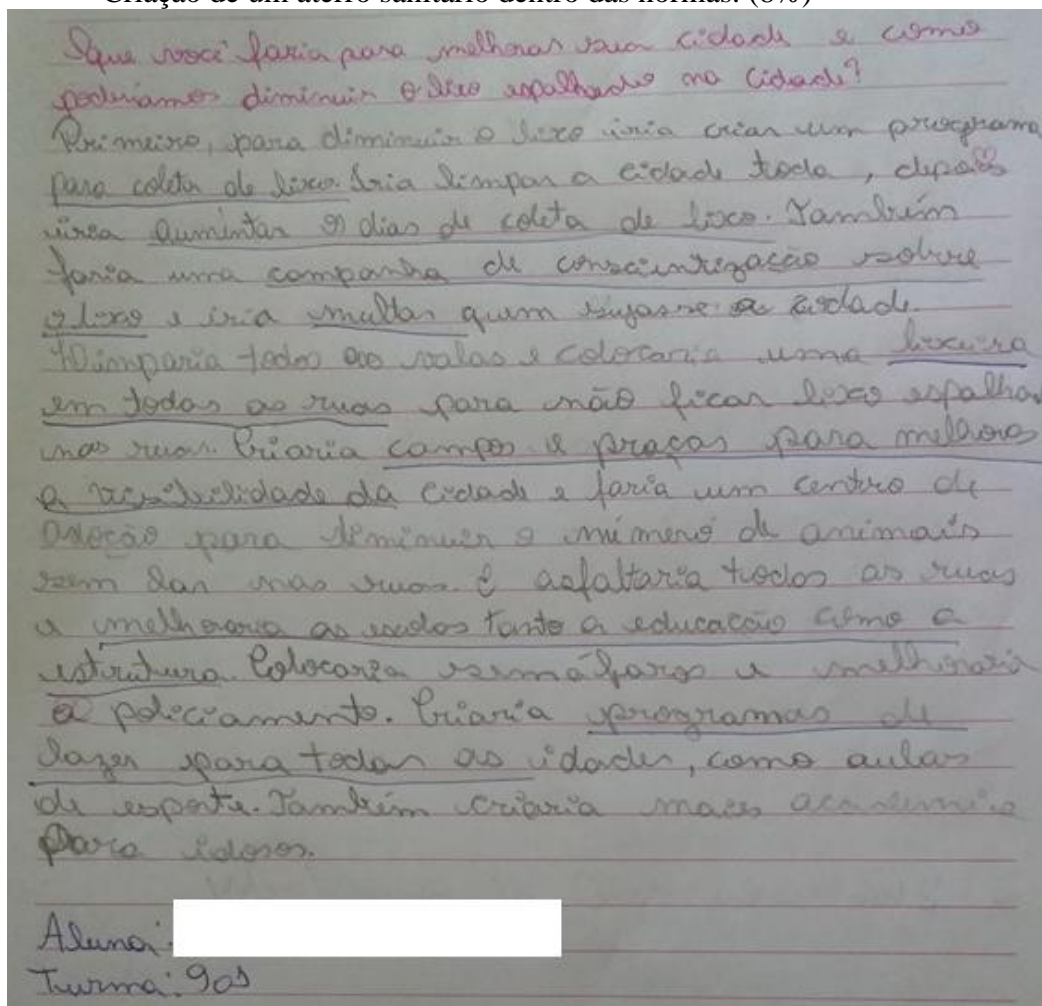 Criação de um aterro sanitário dentro das normas. (8%)
O que você faria para melhorar sua cidade e como
poderiamos diminuir o lixo espalhado na cidade?
Primeiro, para diminuir o lixo iria criar um programa
para coleta de lixo. Iria limpar a cidade toda, depois
iria aumentar os dias de coleta de lixo. Também
faria uma campanha de conscientização sobre
o lixo e iria multar quem sujasse a cidade.
Limparia todas as valas e colocaria uma lixeira
em todas as ruas para não ficar lixo espalhado
nas ruas. Criaria campos e praças para melhorar
a visibilidade da cidade e faria um centro de
adoção para diminuir o número de animais
sem lar nas ruas. E asfaltaria todas as ruas
e melhoraria as escolas tanto a educação como a
estrutura. Colocaria semáfaros e melhoraria
o policiamento. Criaria programas de
lazer para todas as idades, como aulas
de esporte. Também criaria mais academia
para idosos.
Aluna:
Turma: 901